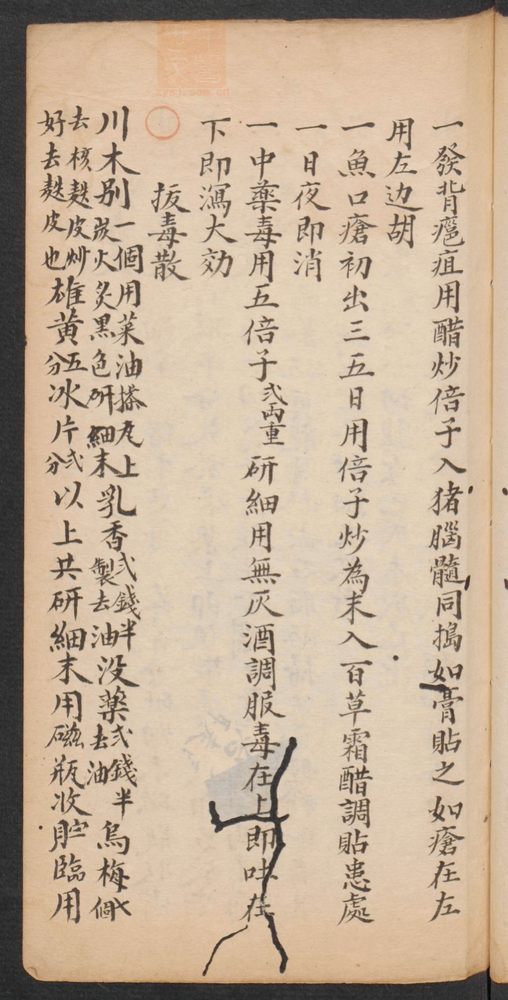 一發背癰疽用醋炒倍子入猪腦髓同搗如膏貼之如瘡在左
用左边胡
一魚口瘡初出三五日用倍子炒為末入百草霜醋調貼患處
一日夜即消
一中藥毒用五倍子弍両重研細用無灰酒調服毒在上即吐在
下即瀉大効
拔毒散
川木別一個用菜油搽左上炭火炙黑色研細末乳香弍錢半製去油没藥弍錢半去油烏梅個
去核麸皮炒好去麸皮也雄黄五分冰片弍分以上共研細末用磁瓶收貯臨用